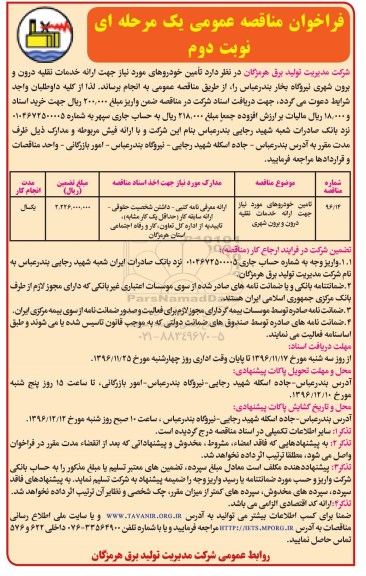 فراخوان مناقصه عمومی یک مرحله ای
نوبت دوم
شرکت مدیریت تولید برق هرمزگان در نظر دارد تأمین خودروهای مورد نیاز جهت ارائه خدمات نقلیه درون و
برون شهری نیروگاه بخار بندرعباس را، از طریق مناقصه عمومی به انجام برساند. لذا از کلیه داوطلبان واجد
شرایط دعوت می گردد، جهت دریافت اسناد شرکت در مناقصه ضمن واریز مبلغ ۲۰۰,۰۰۰ ریال جهت خرید اسناد
و ۱۸,۰۰۰ ریال مالیات بر ارزش افزوده جمعاً مبلغ ۲۱۸,۰۰۰ ریال به حساب جاری سپهر به شماره ۰۱۰۴۶۷۲۵۰۰۰۰۵
نزد بانک صادرات شعبه شهید رجایی بندرعباس بنام این شرکت و با ارائه فیش مربوطه و مدارک ذیل ظرف
مدت مقرر به آدرس بندرعباس - جاده اسکله شهید رجایی - نیروگاه بندرعباس - امور بازرگانی - واحد مناقصات
و قراردادها مراجعه فرمایید.
شماره مناقصه
موضوع مناقصه
مدارک مورد نیاز جهت اخذ اسناد مناقصه
مبلغ تضمین (ریال)
مدت انجام کار
۹۶/۱۴
تامین خودروهای مورد نیاز
جهت ارائه خدمات نقلیه
درون و برون شهری
ارائه معرفی نامه کتبی - داشتن شخصیت حقوقی -
ارائه سابقه کار (حداقل یک کار مشابه)،
تاییدیه از اداره کل تعاون، کار و رفاه اجتماعی
استان هرمزگان
۲,۲۲۶,۰۰۰,۰۰۰
یکسال
تضمین شرکت در فرایند ارجاع کار (مناقصه):
۱.۱.واریز وجه به شماره حساب جاری ۰۱۰۴۶۷۲۵۰۰۰۰۵ نزد بانک صادرات ایران شعبه شهید رجایی بندرعباس به
نام شرکت مدیریت تولید برق هرمزگان.
۲.ضمانتنامه بانکی و یا ضمانت نامه های صادر شده از سوی موسسات اعتباری غیربانکی که دارای مجوز لازم از طرف
بانک مرکزی جمهوری اسلامی ایران هستند.
۳.ضمانت نامه صادره توسط موسسات بیمه گر دارای مجوز لازم برای فعالیت و صدور ضمانت نامه از سوی بیمه مرکزی ایران.
۴.ضمانت نامه های صادره توسط صندوق های ضمانت دولتی که به موجب قانون تاسیس شده یا می شوند و طبق
اساسنامه فعالیت می نمایند.
مهلت دریافت اسناد:
از روز سه شنبه مورخ ۱۳۹۶/۱۱/۱۷ تا پایان وقت اداری روز چهارشنبه مورخ ۱۳۹۶/۱۱/۲۵
محل و مهلت تحویل پاکات پیشنهادی:
آدرس بندرعباس-جاده اسکله شهید رجایی-نیروگاه بندرعباس-امور بازرگانی، تا ساعت ۱۵ روز پنج شنبه
مورخ ۱۳۹۶/۱۲/۱۰.
محل و تاریخ گشایش پاکات پیشنهادی:
آدرس بندرعباس-جاده اسکله شهید رجایی-نیروگاه بندرعباس ، ساعت ۱۰ صبح روز شنبه مورخ ۱۳۹۶/۱۲/۱۲
تذکر۱: سایر اطلاعات تکمیلی در اسناد مناقصه درج گردیده است.
تذکر۲: به پیشنهادهایی که فاقد امضاء، مشروط، مخدوش و پیشنهاداتی که بعد از انقضاء مدت مقرر در فراخوان
واصل می شود، مطلقا ترتیب اثر داده نخواهد شد.
تذکر۳: پیشنهاددهنده مکلف است معادل مبلغ سپرده، تضمین های معتبر تسلیم یا مبلغ مذکور را به حساب بانکی
شرکت واریز و حسب مورد ضمانتنامه یا رسید واریز وجه را ضمیمه پیشنهاد به شرکت تسلیم نماید. به پیشنهادهای فاقد
سپرده، سپرده های مخدوش، سپرده های کمتر از میزان مقرر، چک شخصی و نظایر آن ترتیب اثر داده نخواهد شد.
تذکر۴: ارائه کد اقتصادی الزامی می باشد.
ضمنا برای کسب اطلاعات بیشتر می توانید به آدرس WWW.TAVANIR.ORG.IR و یا سایت ملی اطلاع رسانی
مناقصات به آدرس HTTP://IETS.MPORG.IR مراجعه فرمایید و یا با شماره تلفن ۳۳۵۶۴۹۰۰-۰۷۶ داخلی ۶۲۲ و ۵۷۶
تماس حاصل نمایید.
روابط عمومی شرکت مدیریت تولید برق هرمزگان
ParsNamadData
۰۲۱-۸۸۳۴۹۶۷۰-۵